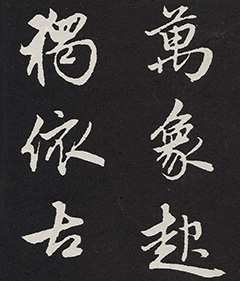 萬象起
獨依古